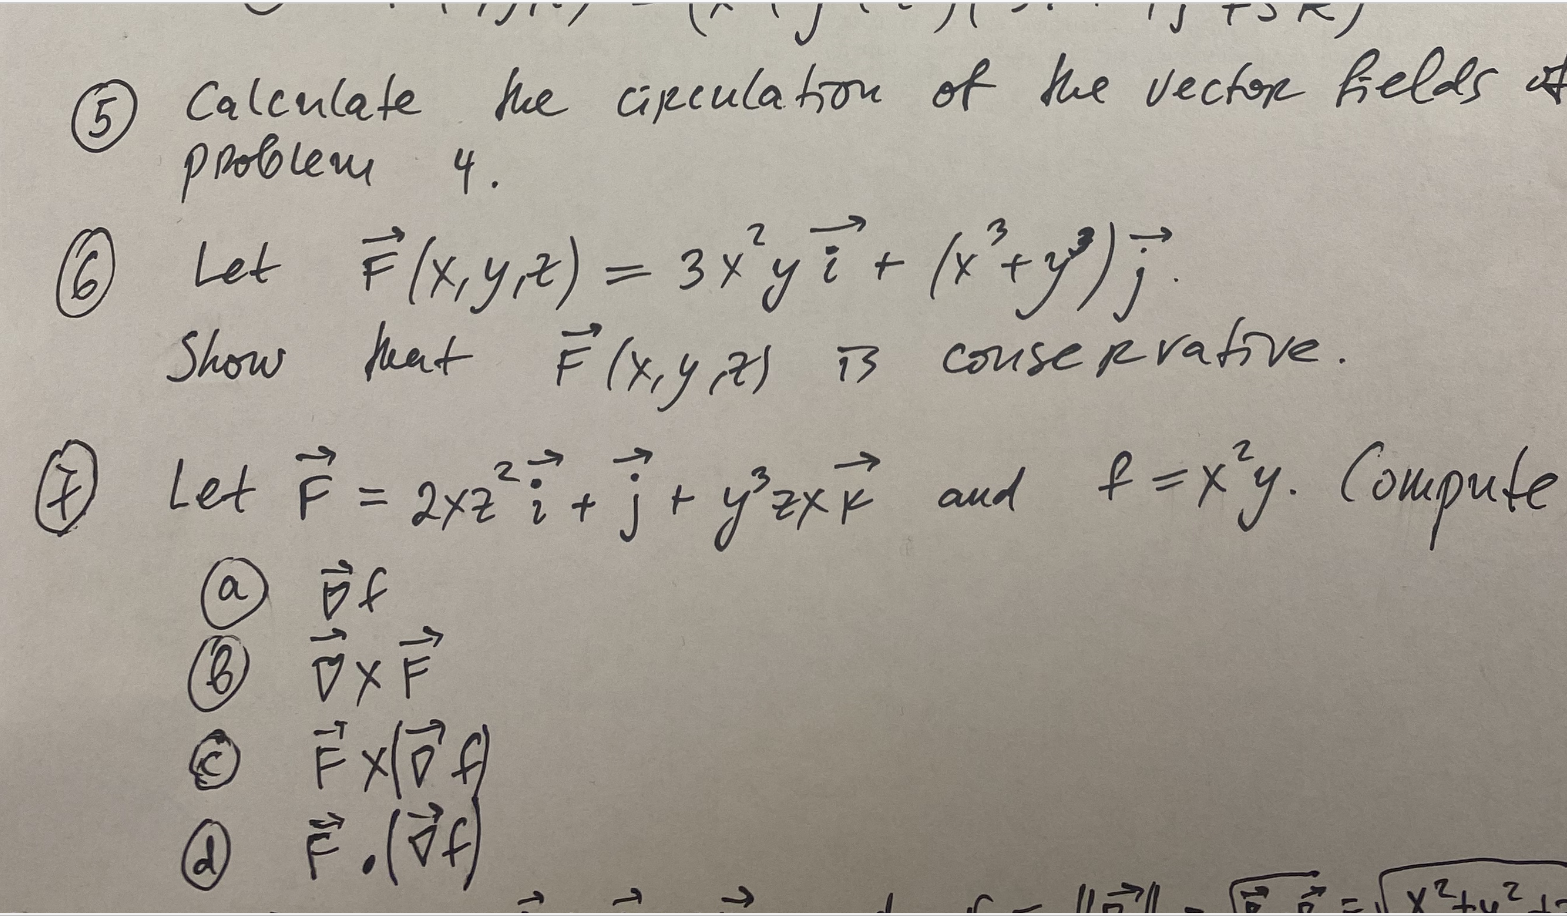 ⑤ Calculate the circulation of the vector fields of
problem 4.
⑥ Let F⃗(x,y,z) = 3x²y i⃗ + (x³+y³) j⃗.
Show that F⃗(x,y,z) is conservative.
⑦ Let F⃗ = 2xz² i⃗ + j⃗ + y³zx k⃗ and f = x²y. Compute
ⓐ ∇⃗f
ⓑ ∇⃗×F⃗
ⓒ F⃗×(∇⃗f)
ⓓ F⃗.(∇⃗f)